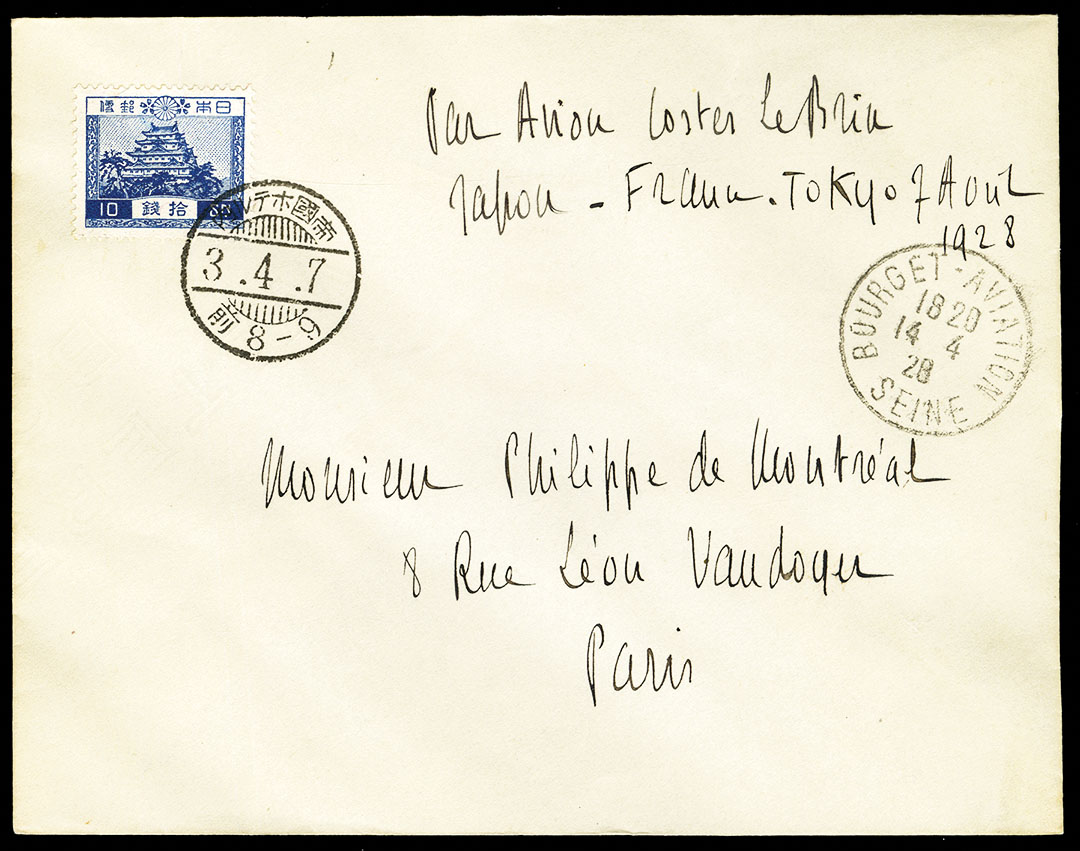 日本郵便
10 拾錢
帝國ホテル
3.4.7
前8-9
Par Avion Costes Le Brix
Japon - France. TOKYO 7 Août
1928
BOURGET-AVIATION
18 20
14 4
28
SEINE
Monsieur Philippe de Montréal
8 Rue Léon Vaudoyer
Paris